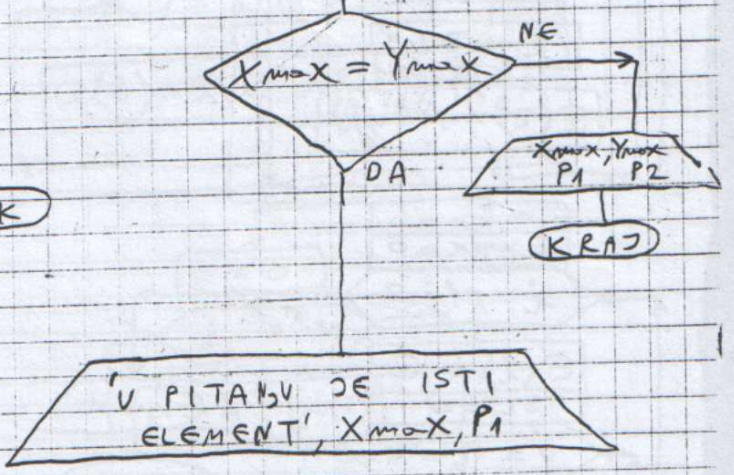 NE
Xmax = Ymax
DA
Xmax, Ymax
P1 P2
K
KRAJ
'U PITANJU JE ISTI
ELEMENT', Xmax, P1